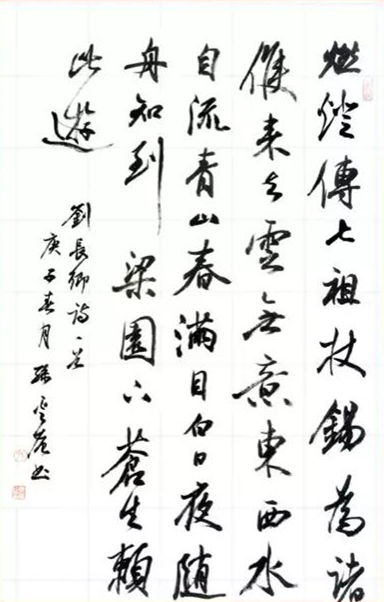 燃燈傳七祖杖錫為諸
侯来去雲無意東西水
自流青山春滿目白日夜随
舟知到梁園下蒼生賴
此遊
劉長卿詩一首
庚子春月孫